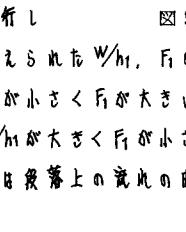 行し 図
えられた W/h1. F1
が小さく F1 が大き
/h1 が大きく F1 が小さ
は段落上の流れの